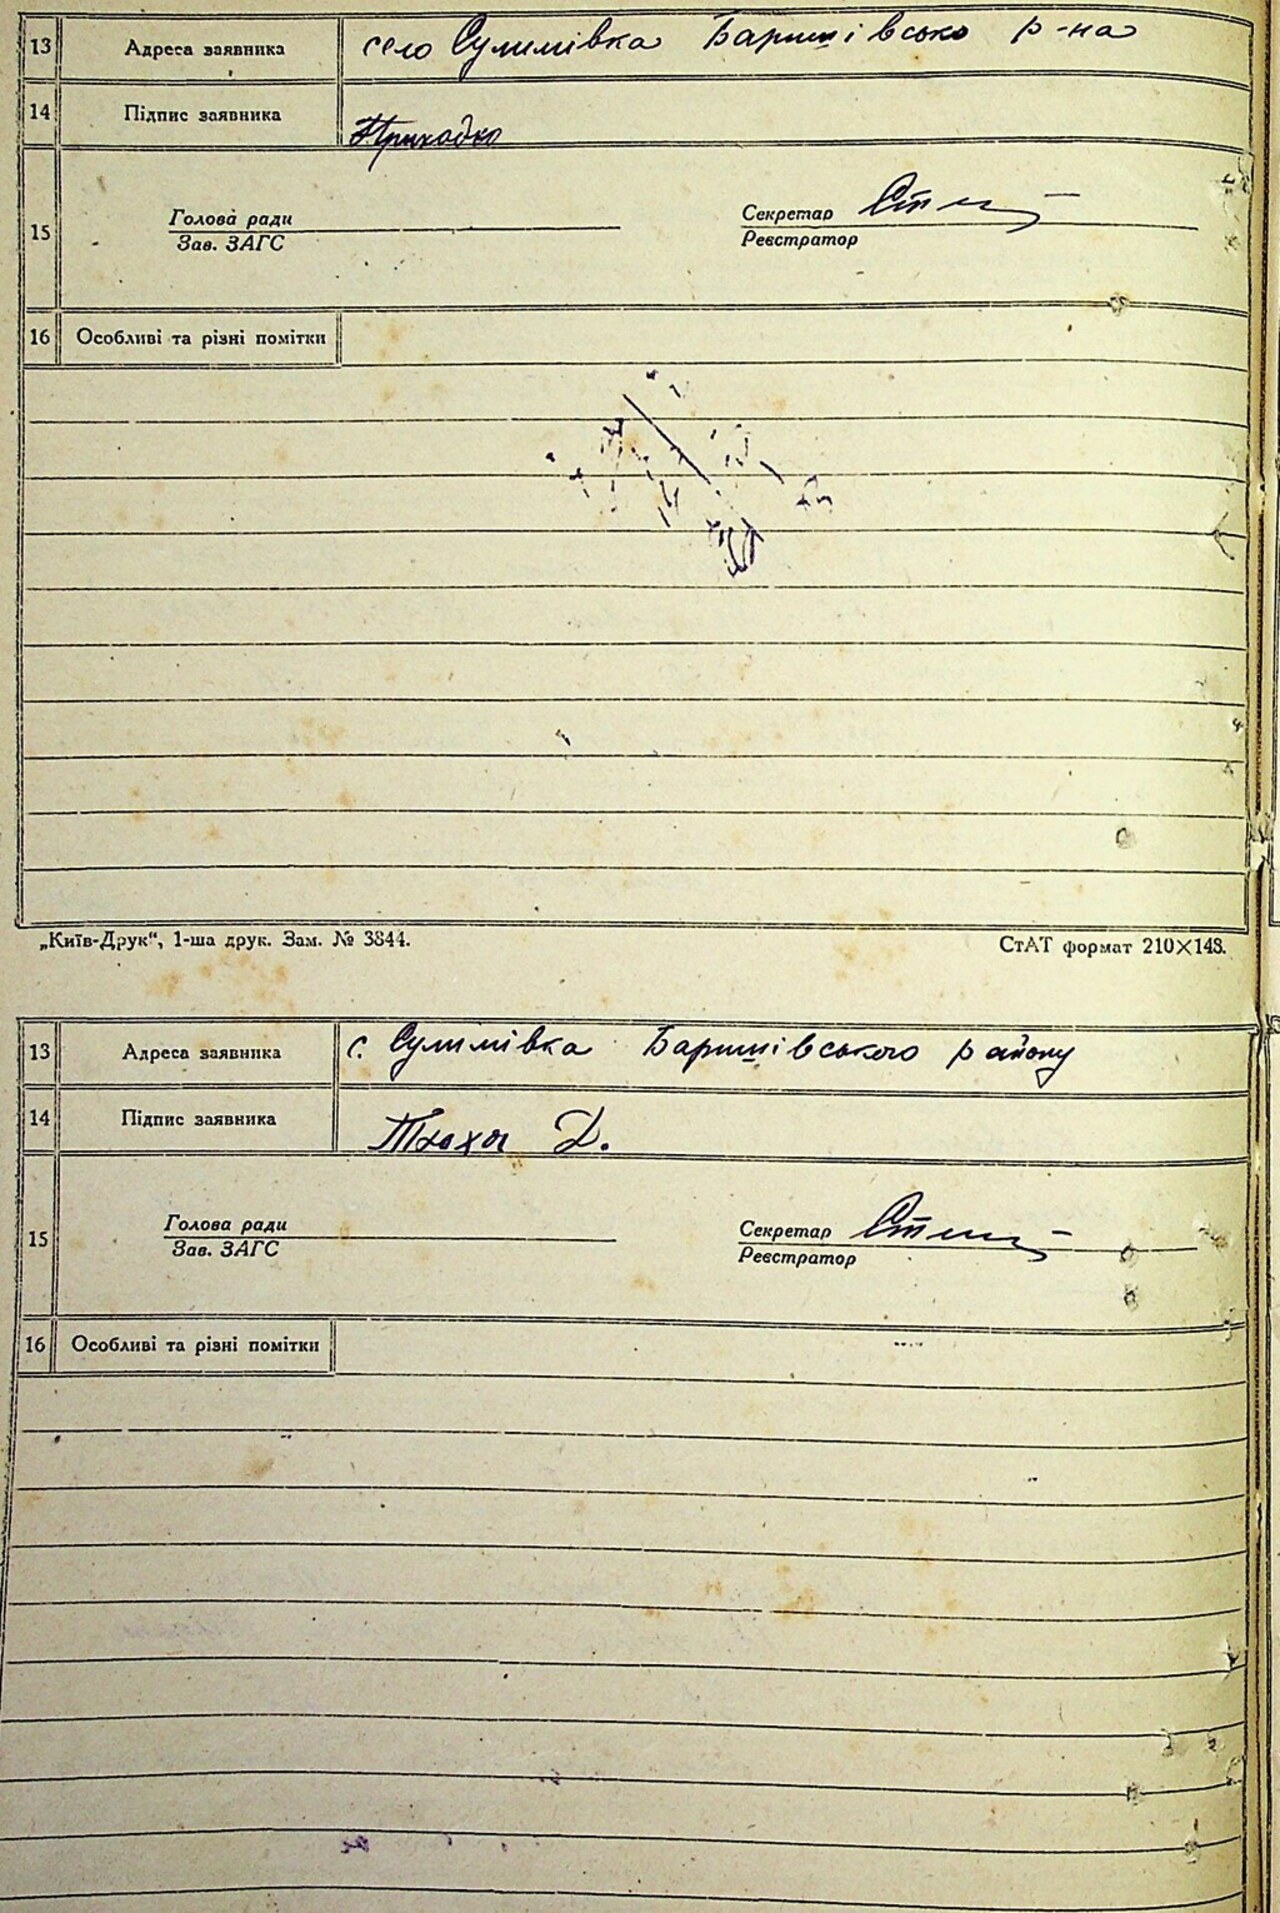 13 Адреса заявника село Сулимівка Баришівсько р-на
14 Підпис заявника Приходко
15 Голова ради Секретар
Зав. ЗАГС Реєстратор
16 Особливі та різні помітки
„Київ-Друк“, 1-ша друк. Зам. № 3844. СтАТ формат 210×148.
13 Адреса заявника с. Сулимівка Баришівського району
14 Підпис заявника Д.
15 Голова ради Секретар
Зав. ЗАГС Реєстратор
16 Особливі та різні помітки